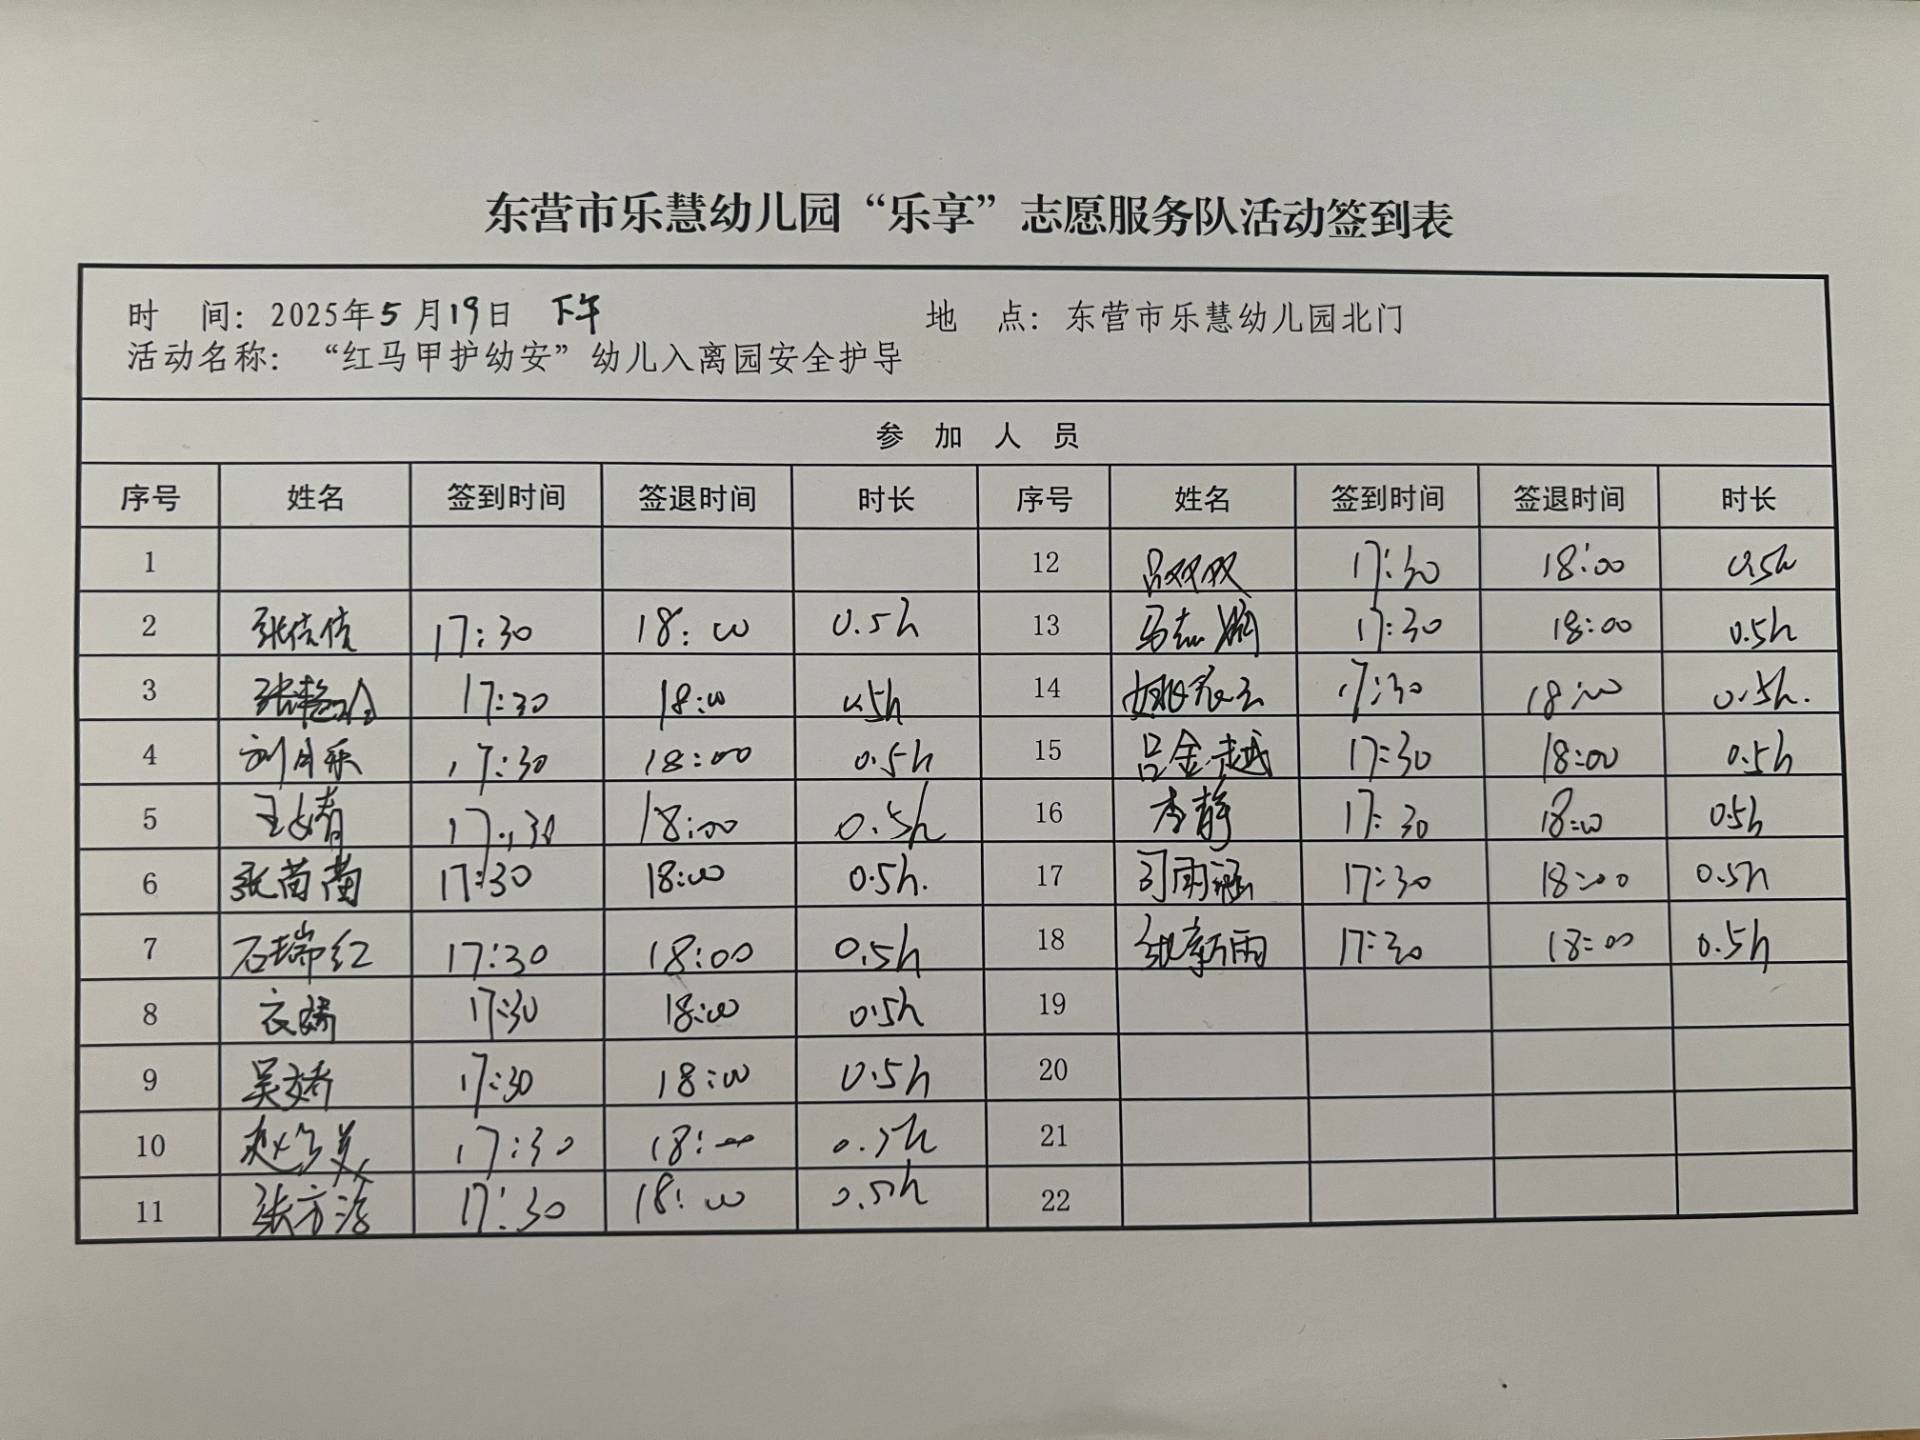 东营市乐慧幼儿园“乐享”志愿服务队活动签到表
时 间：2025年5月19日 下午 地 点：东营市乐慧幼儿园北门
活动名称：“红马甲护幼安”幼儿入离园安全护导
参 加 人 员
序号 姓名 签到时间 签退时间 时长 序号 姓名 签到时间 签退时间 时长
1 12 吕双双 17:30 18:00 0.5h
2 张信信 17:30 18:00 0.5h 13 马志娟 17:30 18:00 0.5h
3 17:30 18:00 0.5h 14 17:30 18:00 0.5h.
4 刘月乐 17:30 18:00 0.5h 15 吕金越 17:30 18:00 0.5h
5 王婧 17:30 18:00 0.5h 16 李静 17:30 18:00 0.5h
6 张苗苗 17:30 18:00 0.5h. 17 司雨涵 17:30 18:00 0.5h
7 石瑞红 17:30 18:00 0.5h 18 张新雨 17:30 18:00 0.5h
8 17:30 18:00 0.5h 19
9 吴婷 17:30 18:00 0.5h 20
10 17:30 18:00 0.5h 21
11 张方 17:30 18:00 0.5h 22